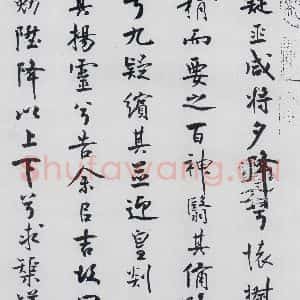 疑巫咸将夕降兮懷椒
糈而要之百神翳其備
兮九疑繽其並迎皇剡
其揚靈兮告余㠯吉故曰
勉陞降以上下兮求榘矱
Shufawang.cn